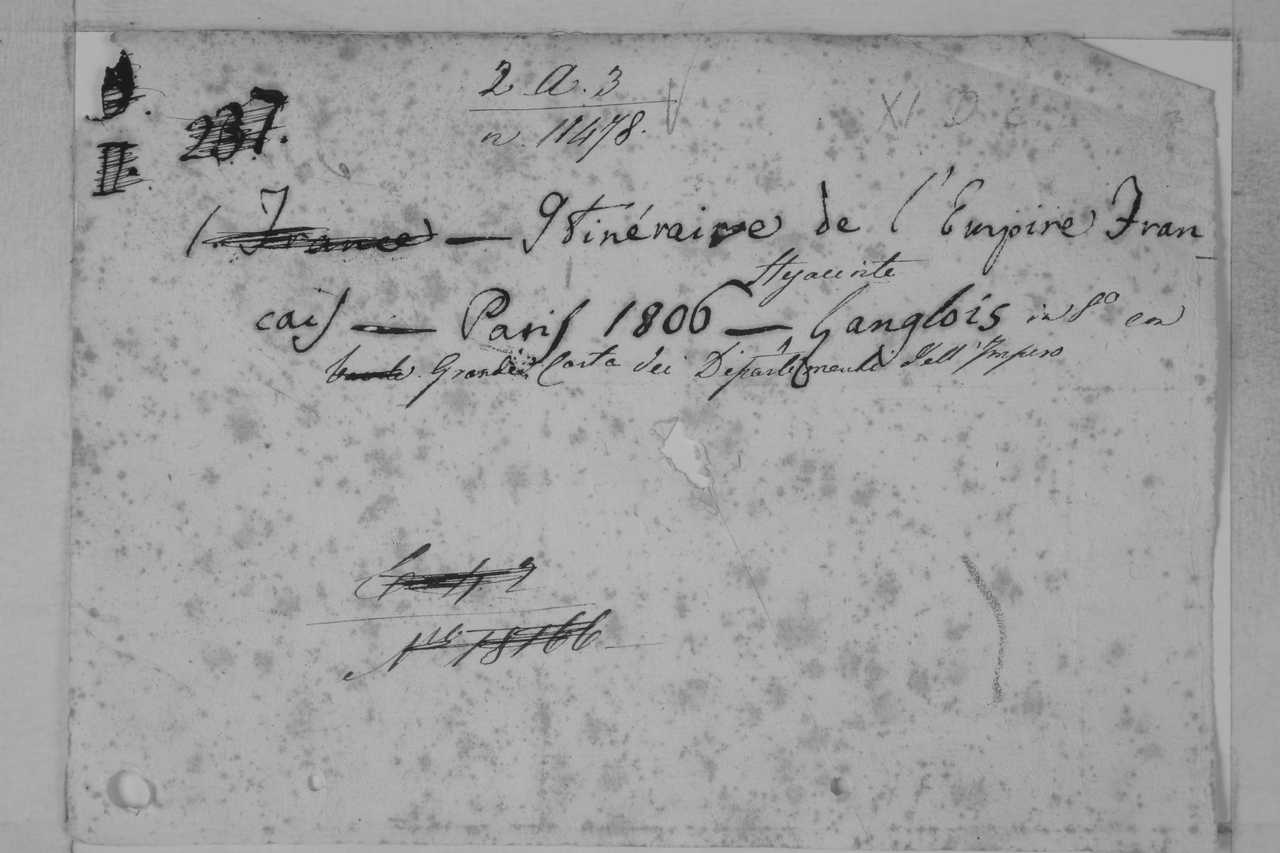 2. A. 3
n. 11478.
XI D c
237.
II.
1. France — Itinéraire de l'Empire Fran
Hyacinte
cais — Paris 1806 — Langlois in 8º con
Grande Carta dei Dipartimenti dell'Impero
18166